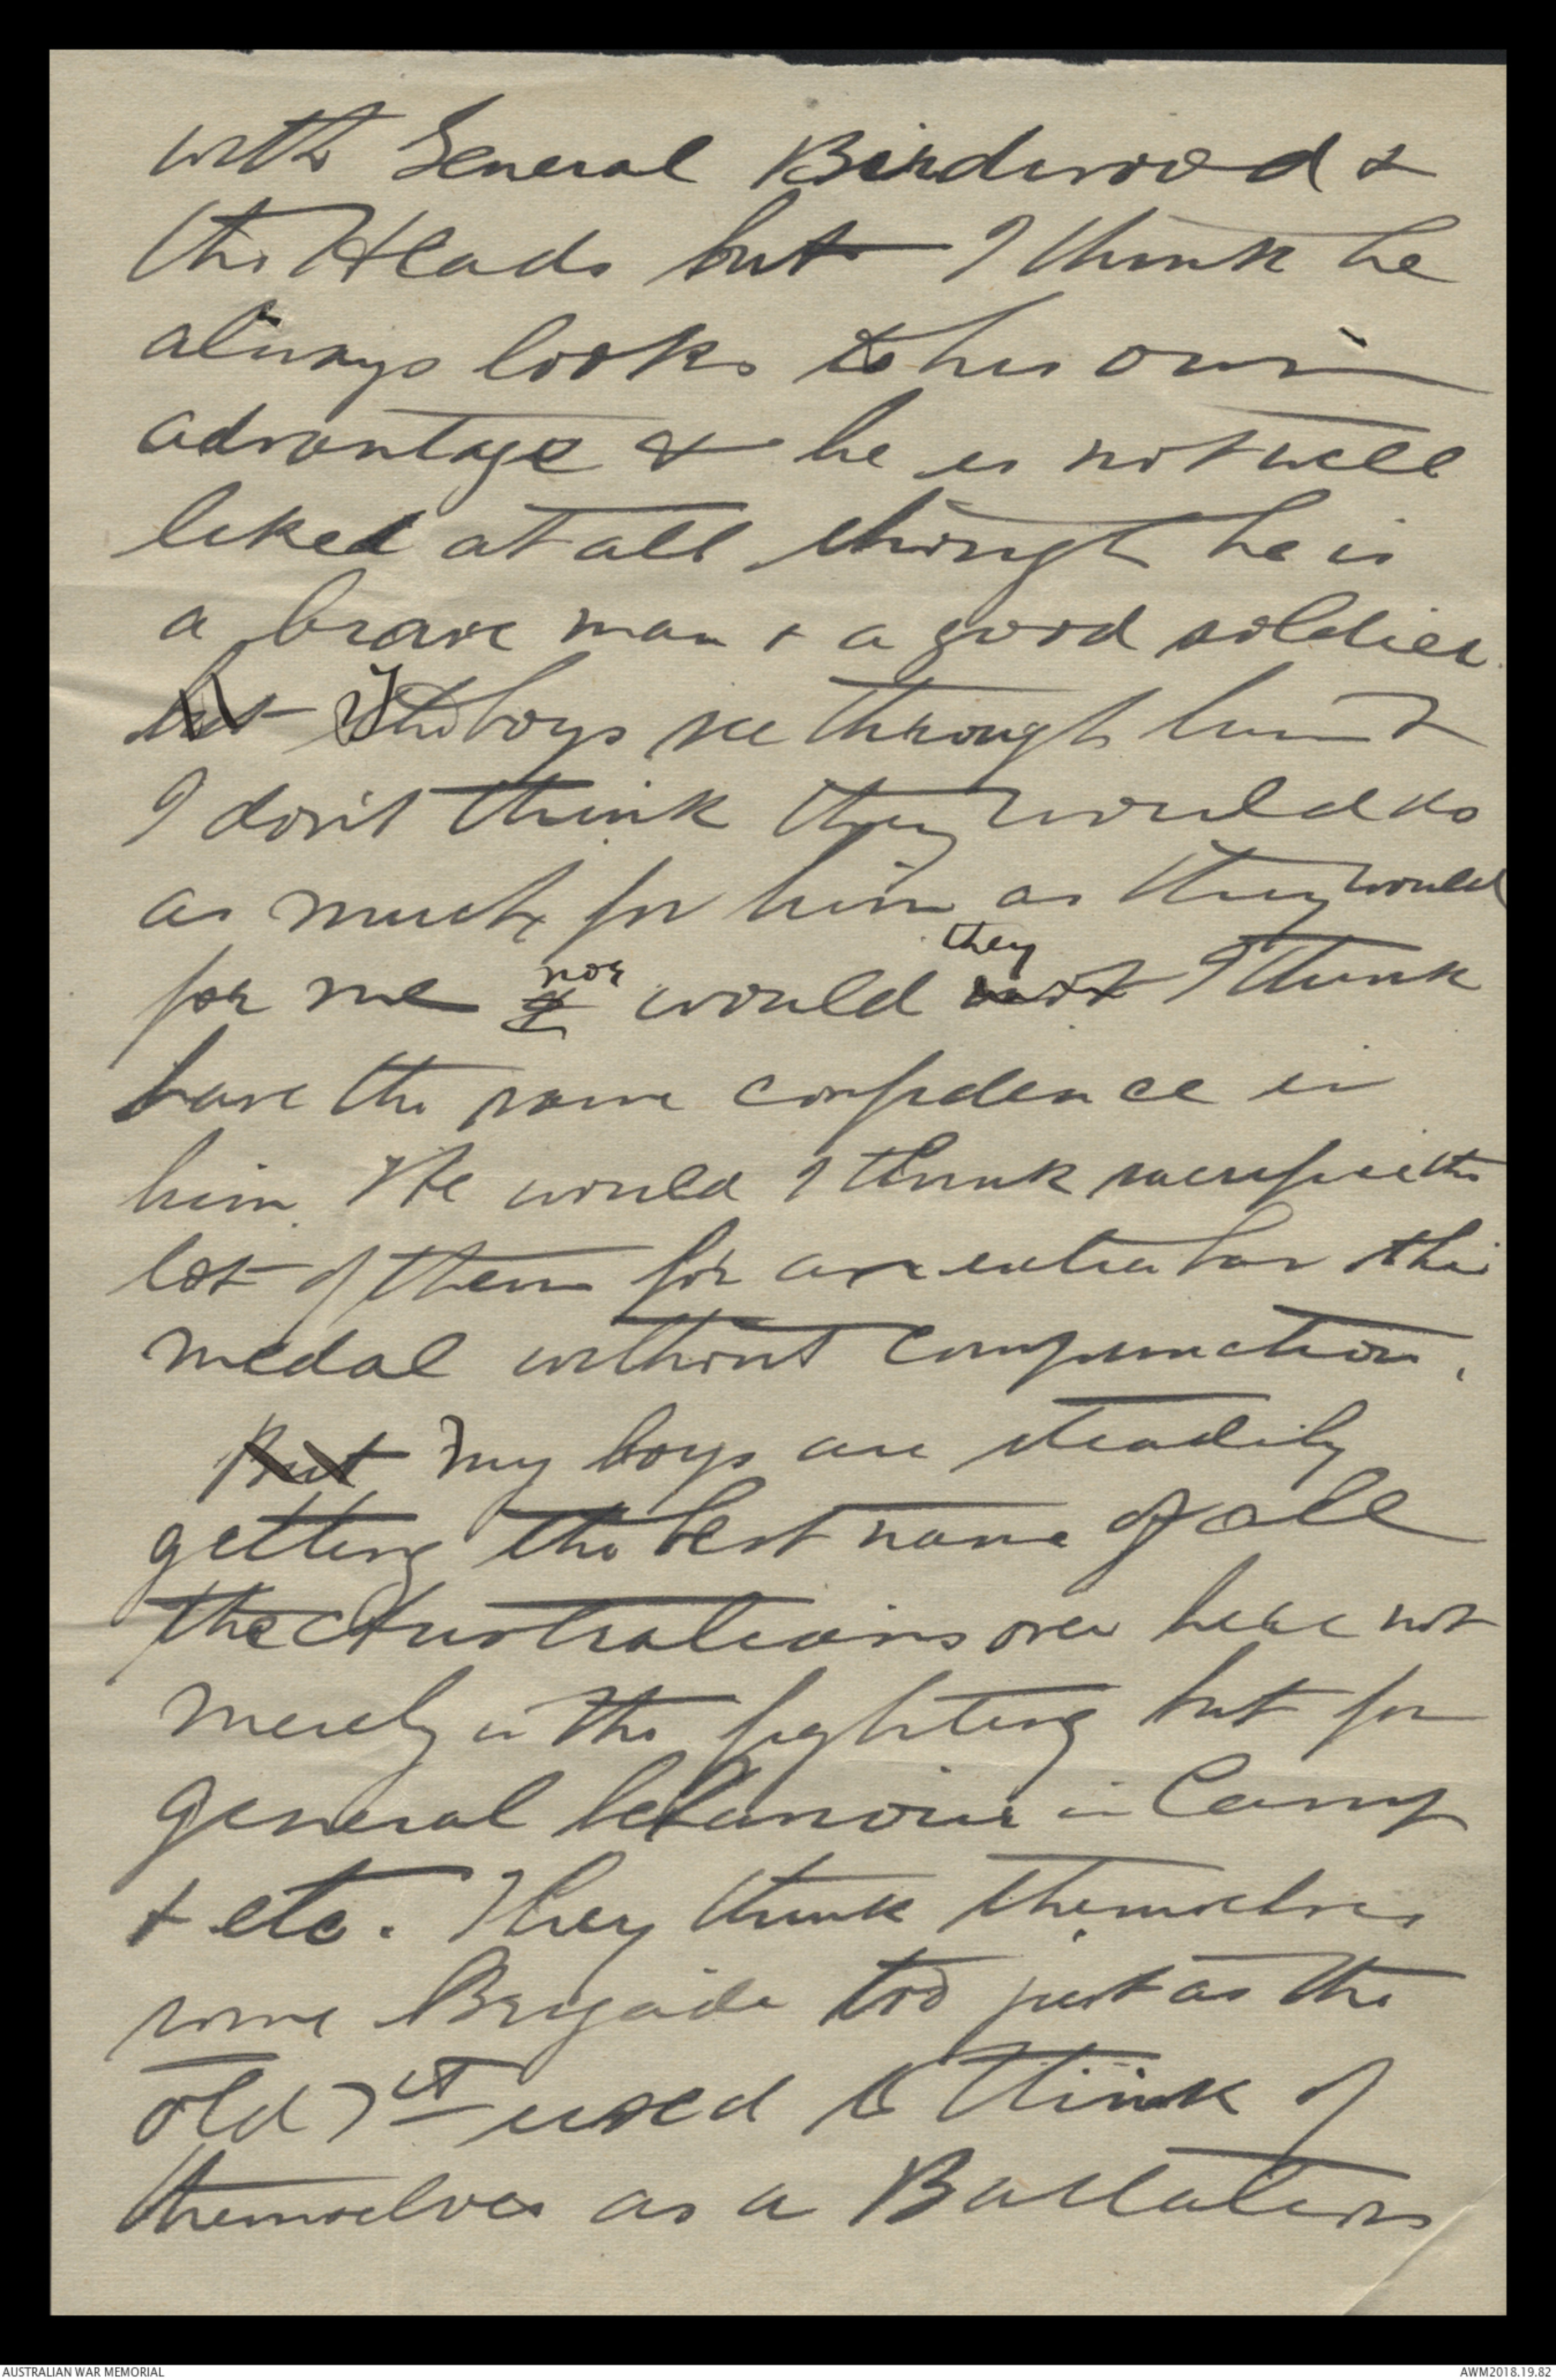 with General Birdwood &
the Heads but I think he
always looks to his own
advantage & he is not well
liked at all though he is
a brave man & a good soldier.
but The boys see through him &
I don't think they would do
as much for him as they would
for me & nor would not they I think
have the same confidence in
him. He would I think sacrifice the
lot of them for an extra bar to his
medal without compunction.
But My boys are steadily
getting the best name of all
the Australians over here not
merely in the fighting but for
general behaviour in Camp
& etc. They think themselves
some Brigade too just as the
old 1st used to think of
themselves as a Battalion
AUSTRALIAN WAR MEMORIAL
AWM2018.19.82